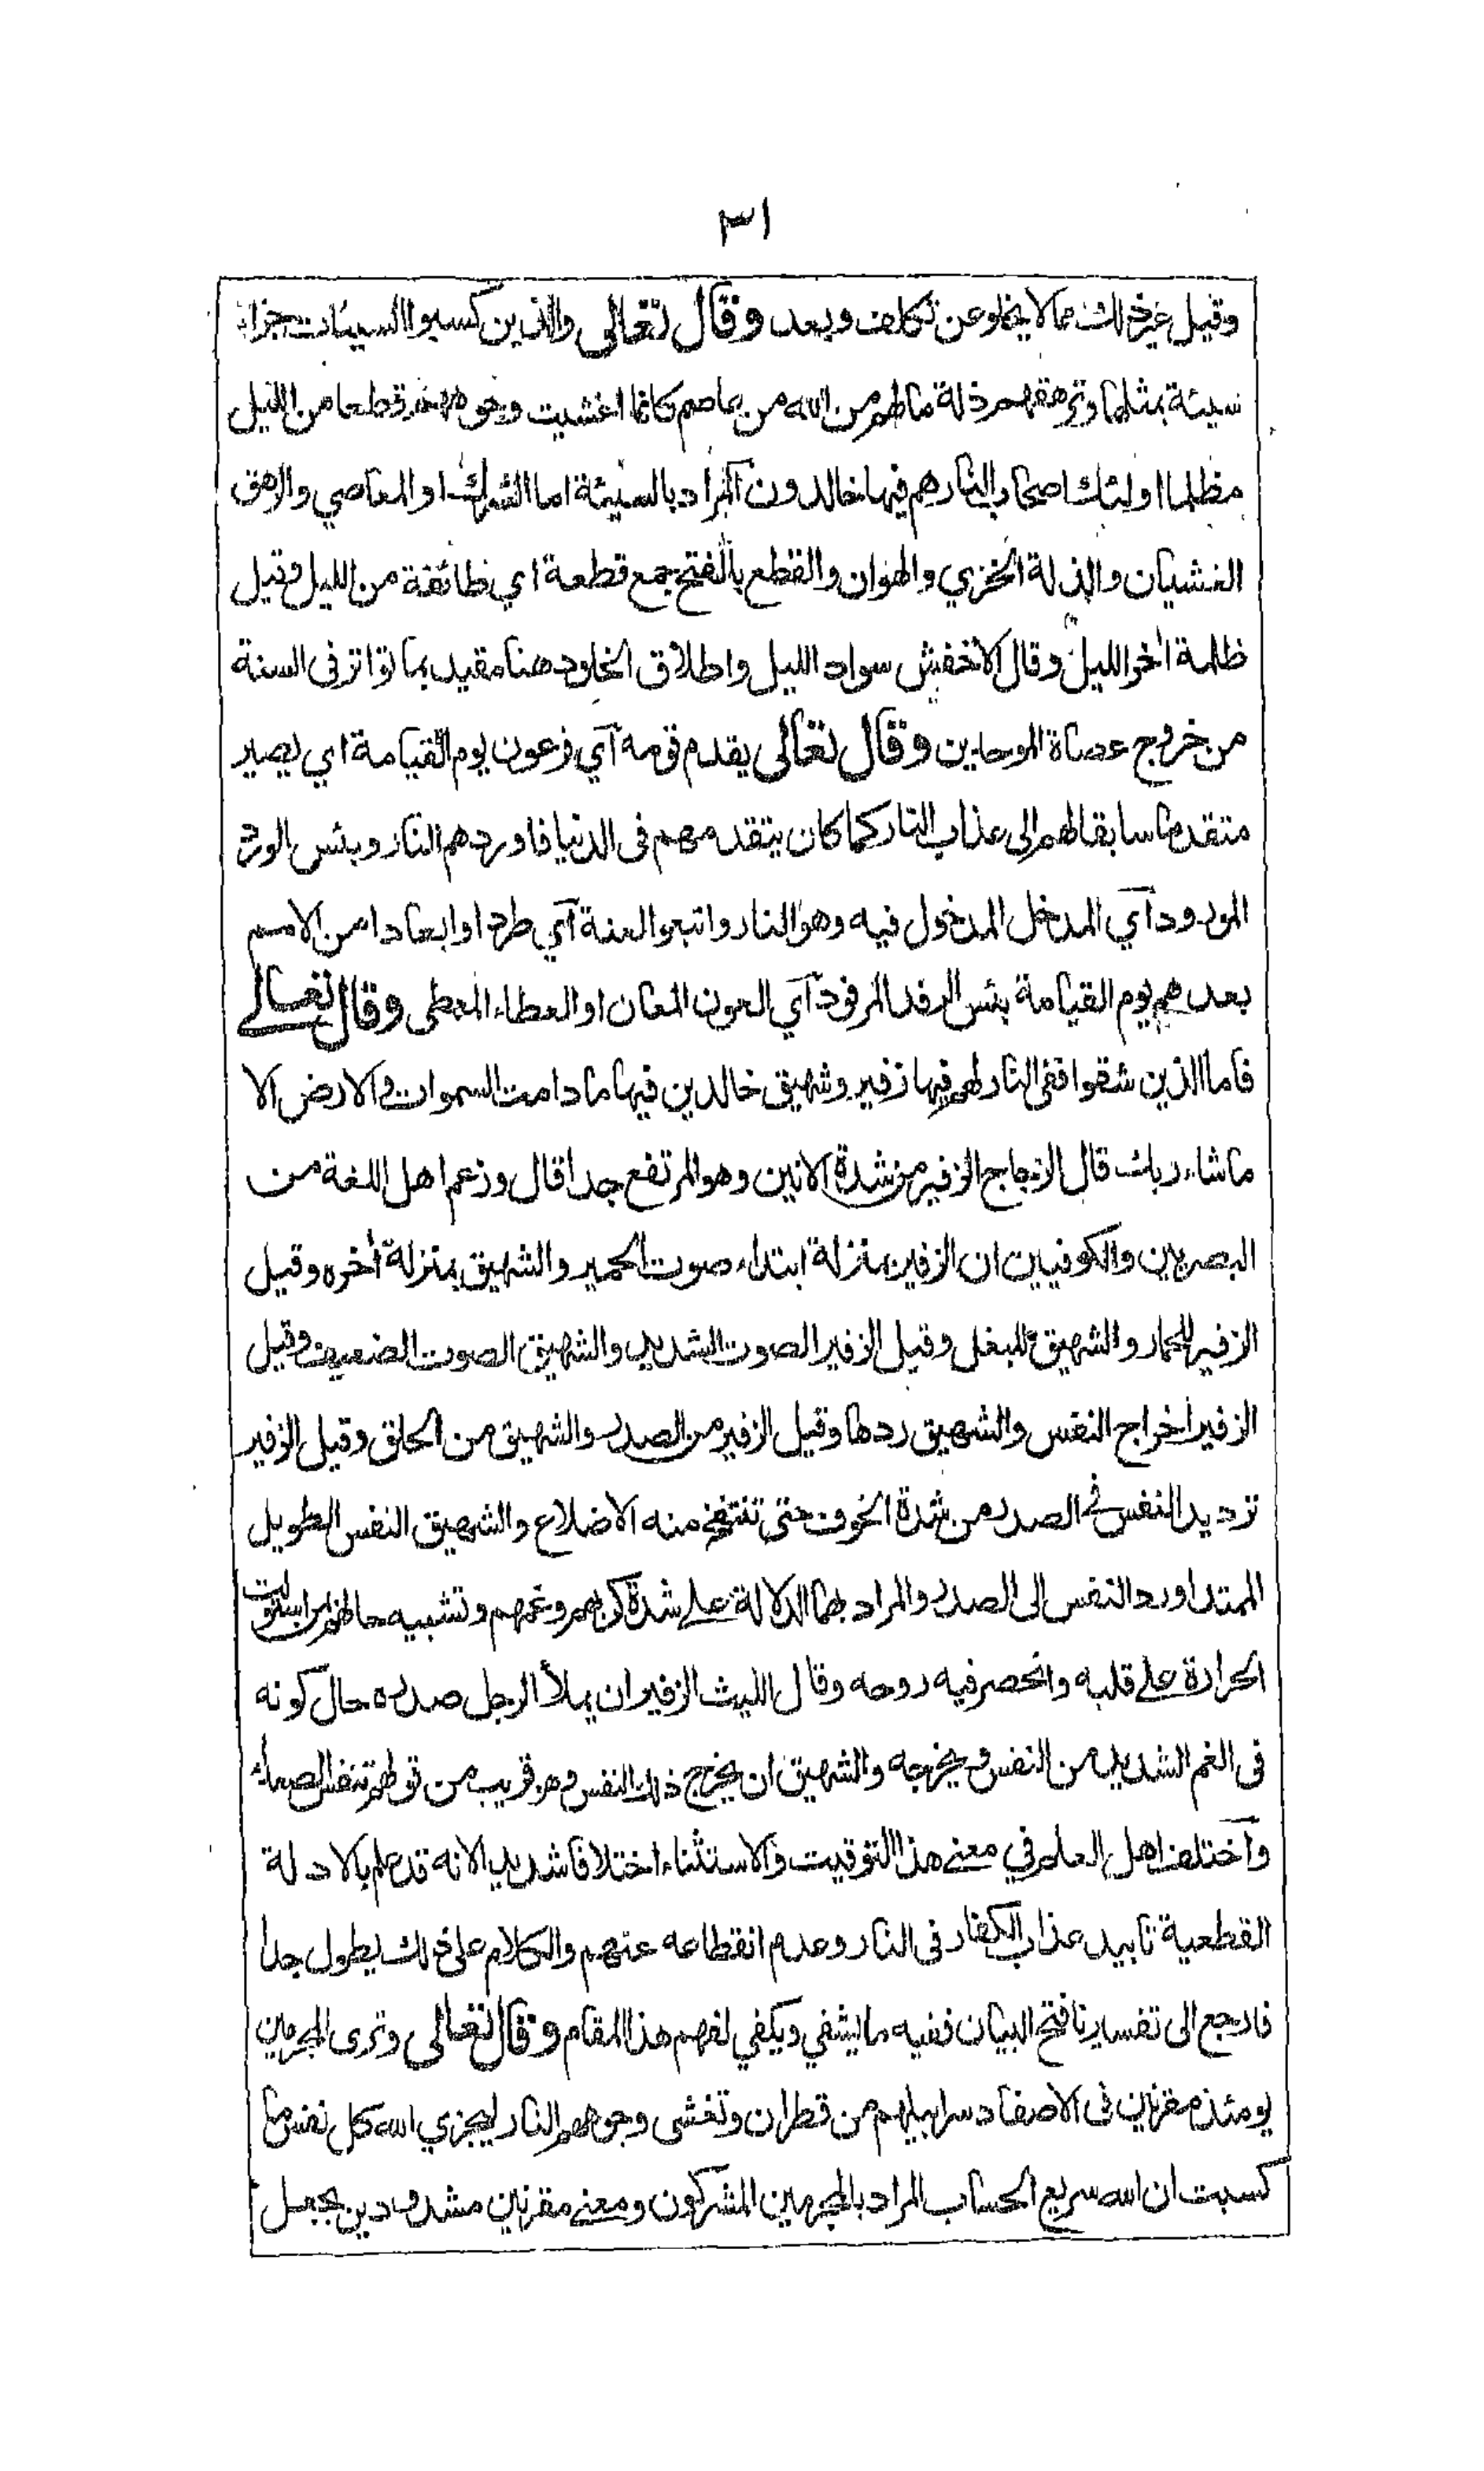 ٣١
وقيل غير ذلك مما لا يخلو عن تكلف وبعد وقال تعالى والذين كسبوا السيئات جزاء
سيئة بمثلها وترهقهم ذلة ما لهم من الله من عاصم كانما اغشيت وجوههم قطعا من الليل
مظلما اولئك اصحاب النار هم فيها خالدون المراد بالسيئة اما الشرك او المعاصي والرهق
الغشيان والذلة الخزي والهوان والقطع بالفتح جمع قطعة اي طائفة من الليل وقيل
ظلمة اخر الليل وقال الاخفش سواد الليل واطلاق الخلود هنا مقيد بما تواتر فى السنة
من خروج عصاة الموحدين وقال تعالى يقدم قومه آي فرعون يوم القيامة اي يصير
متقدما سابقا لهم الى عذاب النار كما كان يتقدمهم فى الدنيا فاوردهم النار وبئس الورد
المورود آي المدخل المدخول فيه وهو النار واتبعوا لعنة آي طردا وابعادا من الامم
بعدهم يوم القيامة بئس الرفد المرفود آي العون المعان او العطاء المعطى وقال تعالے
فاما الذين شقوا ففى النار لهم فيها زفير وشهيق خالدين فيها ما دامت السموات والارض الا
ما شاء ربك قال الزجاج الزفير من شدة الانين وهو المرتفع جدا قال وزعم اهل اللغة من
البصريين والكوفيين ان الزفير بمنزلة ابتداء صوت الحمير والشهيق بمنزلة أخره وقيل
الزفير للحمار والشهيق للبغل وقيل الزفير الصوت الشديد والشهيق الصوت الضعيف وقيل
الزفير اخراج النفس والشهيق ردها وقيل الزفير من الصدر والشهيق من الحلق وقيل الزفير
ترديد النفس فے الصدر من شدة الخوف حتى تنتفخ منه الاضلاع والشهيق النفس الطويل
الممتد او رد النفس الى الصدر والمراد بهما الدلالة علے شدة كربهم وغمهم وتشبيه حالهم بمن استولت
الحرارة علے قلبه وانحصر فيه روحه وقال الليث الزفير ان يملأ الرجل صدره حال كونه
فى الغم الشديد من النفس ويخرجه والشهيق ان يخرج ذلك النفس وهو قريب من قولهم تنفس الصعداء
وآختلف اهل العلم في معنے هذا التوقيت والاستثناء اختلافا شديدا لانه قد علم بالادلة
القطعية تابيد عذاب الكفار فى النار وعدم انقطاعه عنهم والكلام على ذلك يطول جدا
فارجع الى تفسيرنا فتح البيان ففيه ما يشفي ويكفي لفهم هذا المقام وقال تعالى وترى المجرمين
يومئذ مقرنين فى الاصفاد سرابيلهم من قطران وتغشى وجوههم النار ليجزي الله كل نفس ما
كسبت ان الله سريع الحساب المراد بالمجرمين المشركون ومعنے مقرنين مشدودين بجعل